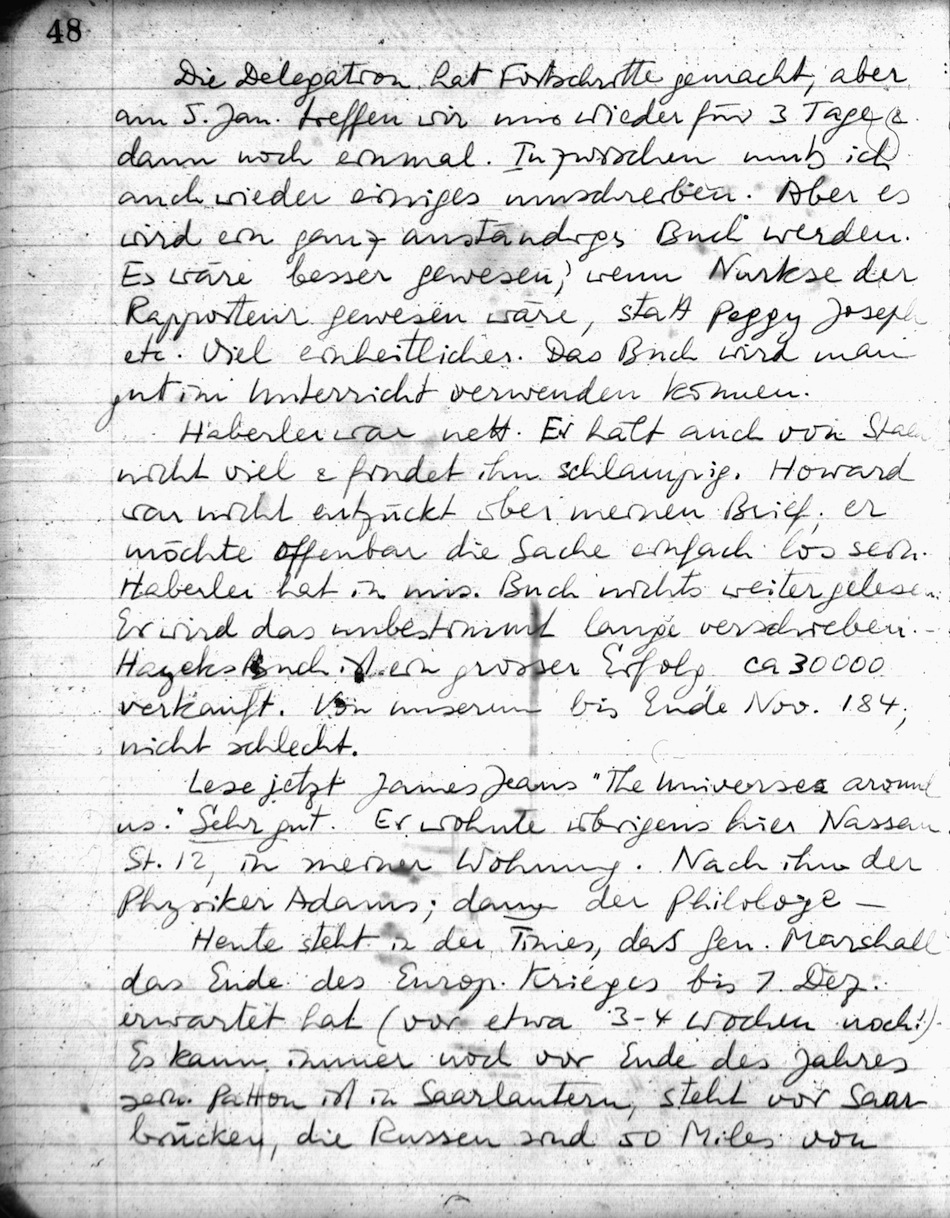 48
Die Delegation hat Fortschritte gemacht, aber
am 5. Jan. treffen wir uns wieder für 3 Tage &
dann noch einmal. Inzwischen muß ich
auch wieder einiges umschreiben. Aber es
wird ein ganz anständiges Buch werden.
Es wäre besser gewesen, wenn Nurkse der
Rapporteur gewesen wäre, statt Peggy Joseph
etc. Viel einheitlicher. Das Buch wird man
gut im Unterricht verwenden können.
Haberler war nett. Er hält auch von
nicht viel & findet ihn schlampig. Howard
war nicht entzückt über meinen Brief; er
möchte offenbar die Sache einfach los sein.
Haberler hat in uns. Buch nichts weitergelesen.
Er wird das unbestimmt lange verschieben. –
Hayeks Buch ist ein grosser Erfolg, ca 30000
verkauft. Von unserem bis Ende Nov. 184,
nicht schlecht.
Lese jetzt James Jeans "The Universe around
us." Sehr gut. Er wohnte übrigens hier Nassau
St. 12, in meiner Wohnung. Nach ihm der
Physiker Adams; dann der Philologe –
Heute steht in der Times, daß Gen. Marshall
das Ende des Europ. Krieges bis 7. Dez.
erwartet hat (vor etwa 3-4 Wochen noch!).
Es kann immer noch vor Ende des Jahres
sein. Patton ist in Saarlautern, steht vor Saar-
brücken, die Russen sind 50 Miles von